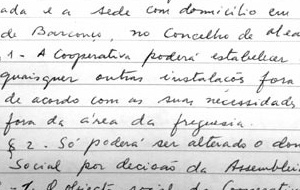 ada e a sede com domicílio em
de Barcouço, no Concelho de Mea
1 - A Cooperativa poderá estabelecer
quaisquer outras instalacões fora
de acordo com as suas necessidade
fora da área da freguesia.
§ 2 - Só poderá ser alterado o dom
Social por decisão da Assemblei
O objecto social da Cooperativa